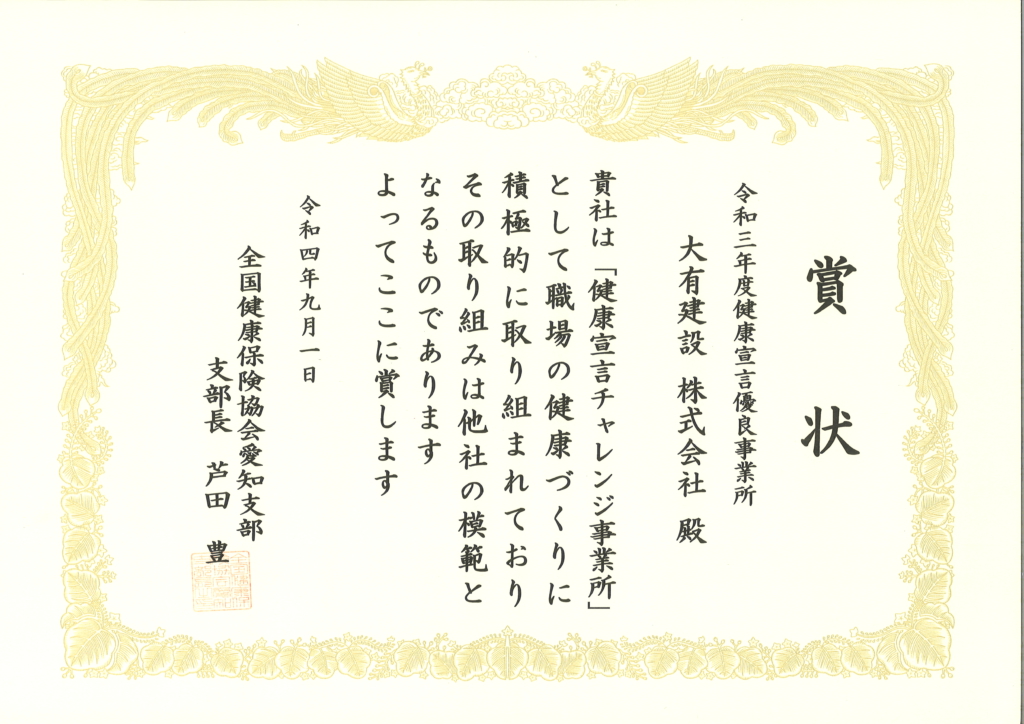 賞状
令和三年度健康宣言優良事業所
大有建設 株式会社 殿
貴社は「健康宣言チャレンジ事業所」
として職場の健康づくりに
積極的に取り組まれており
その取り組みは他社の模範と
なるものであります
よってここに賞します
令和四年九月一日
全国健康保険協会愛知支部
支部長 芦田 豊